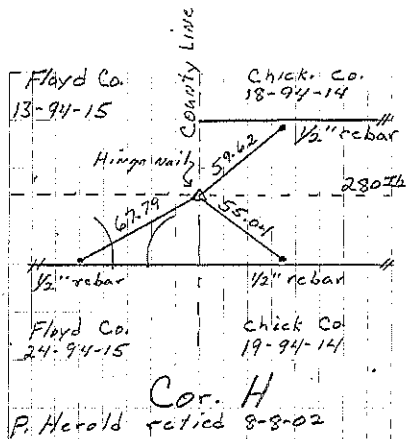 County Line
Floyd Co.
13-94-15
Chick. Co.
18-94-14
1/2" rebar
Hinge nail
59.62
280Th
67.79
55.04
1/2" rebar
1/2" rebar
Floyd Co.
24-94-15
Chick Co
19-94-14
Cor. H
P. Herold retied 8-8-02